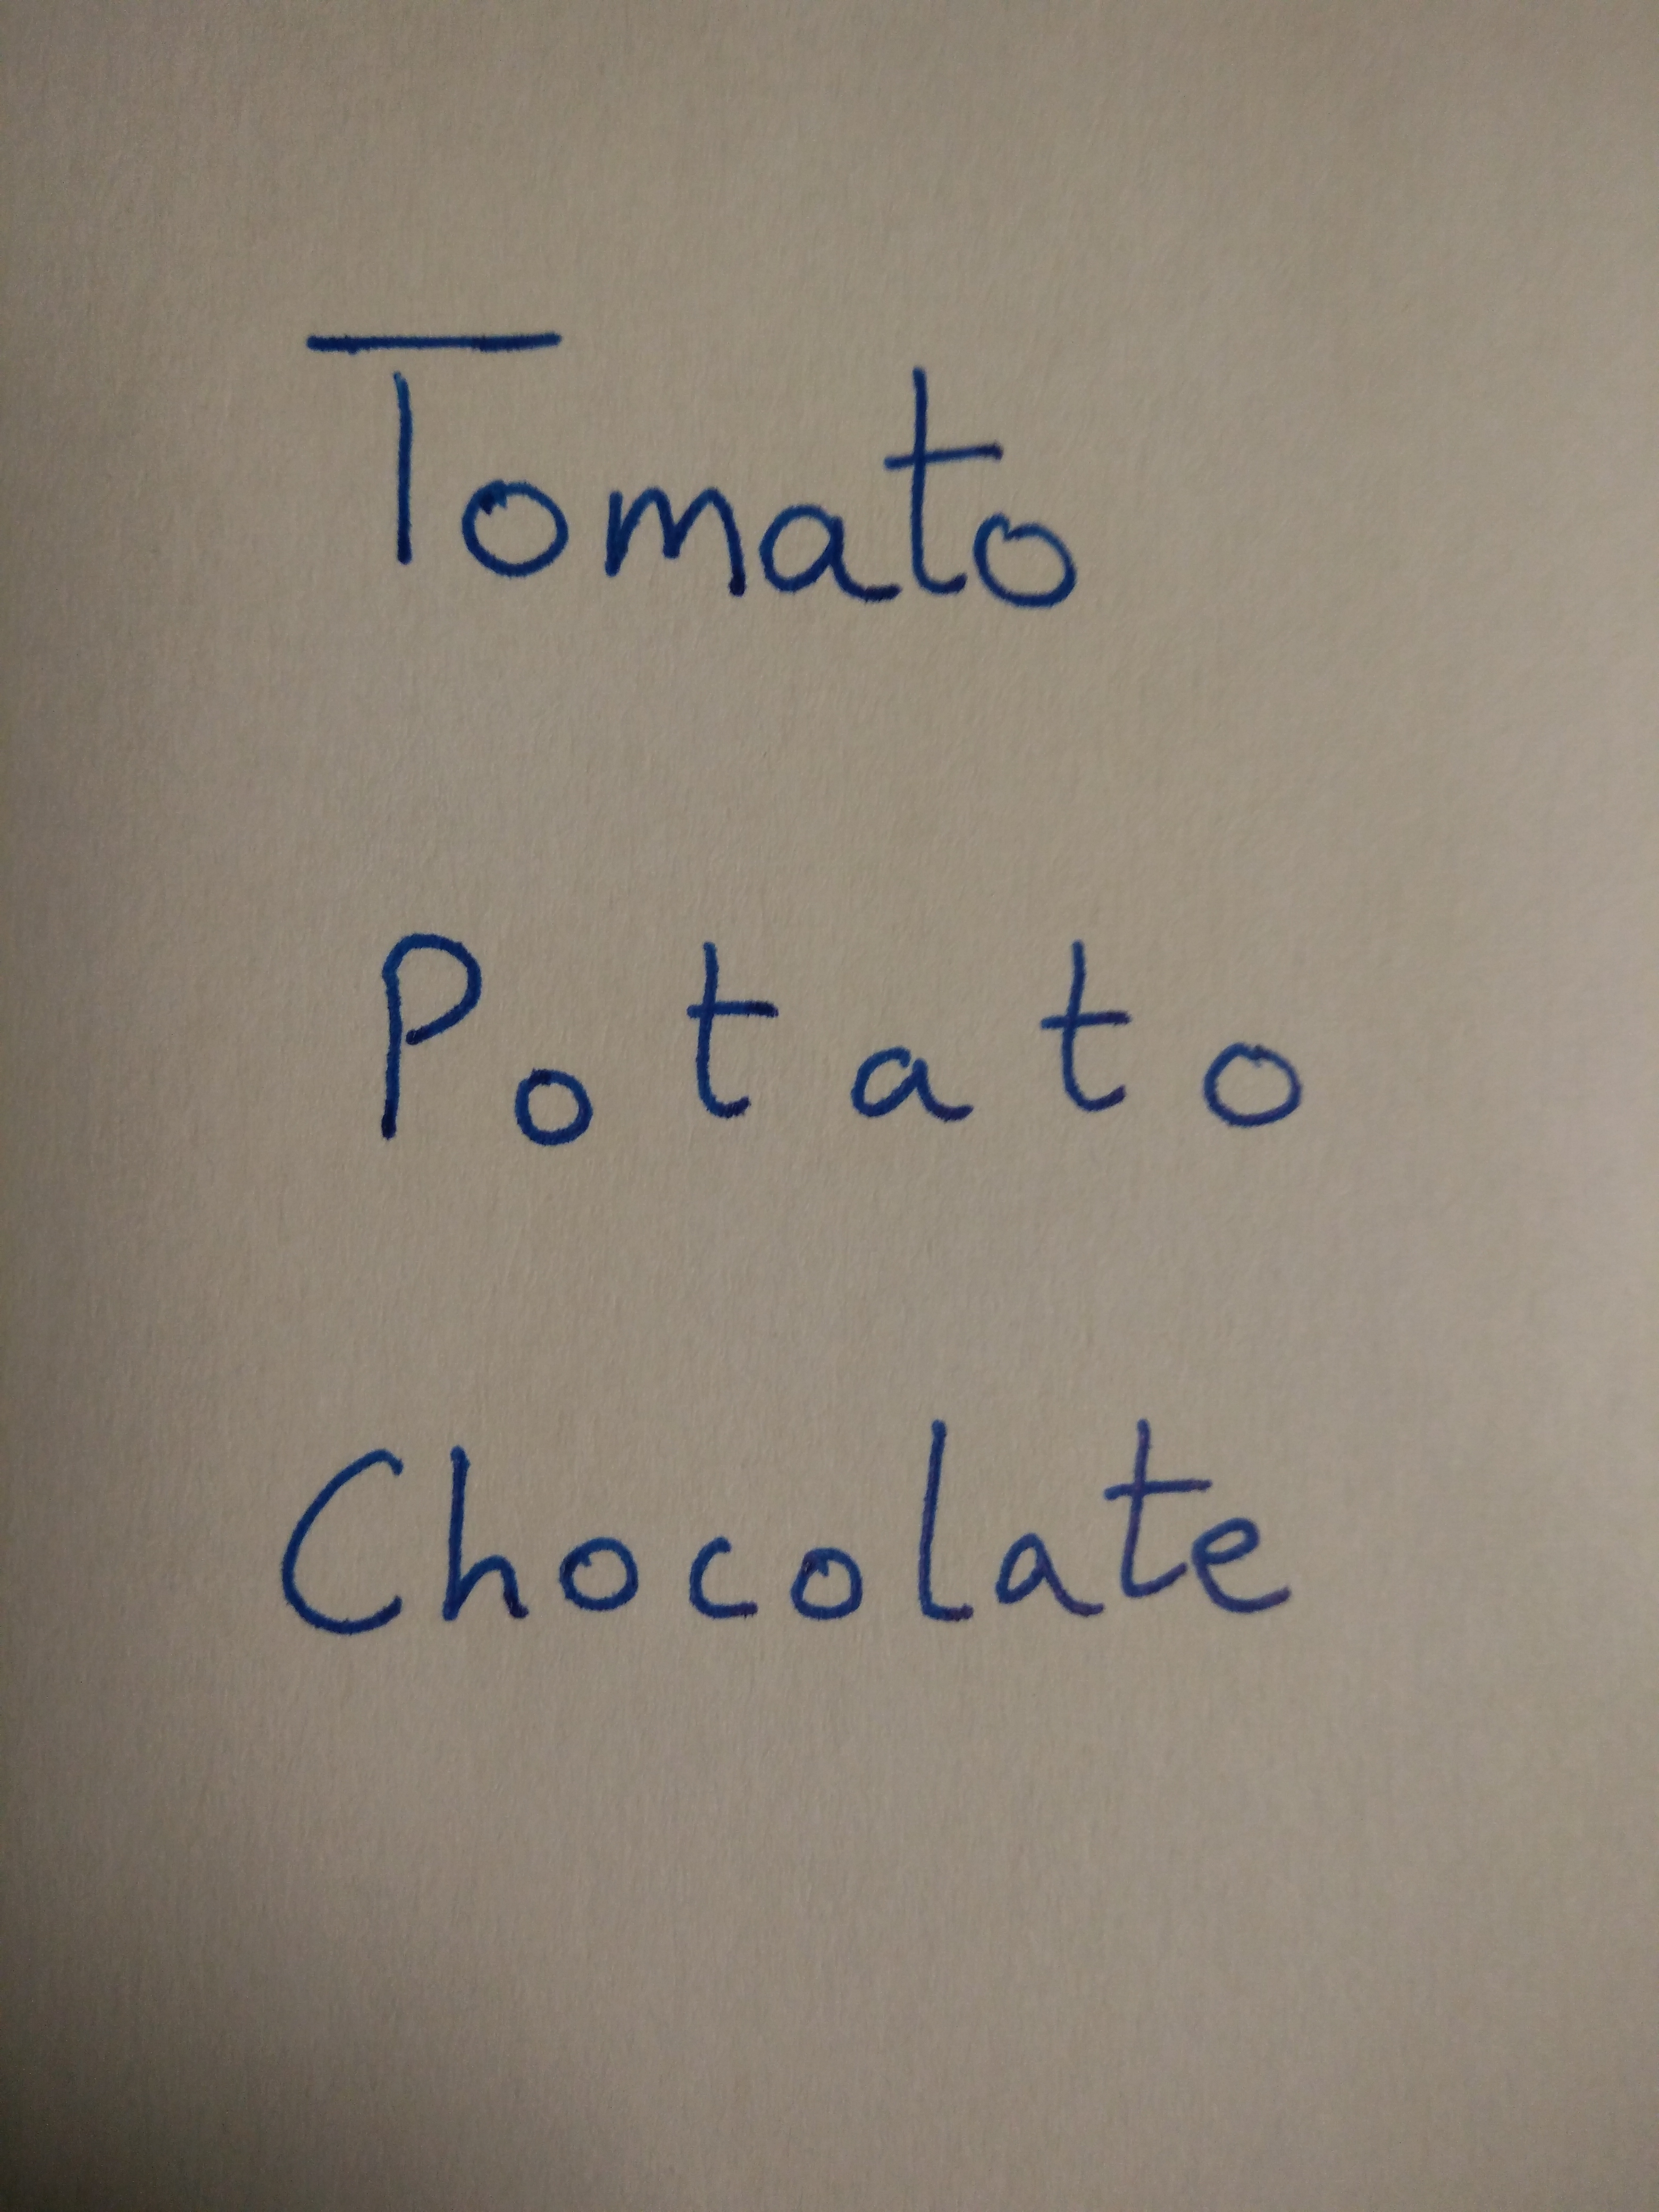 Tomato
Potato
Chocolate